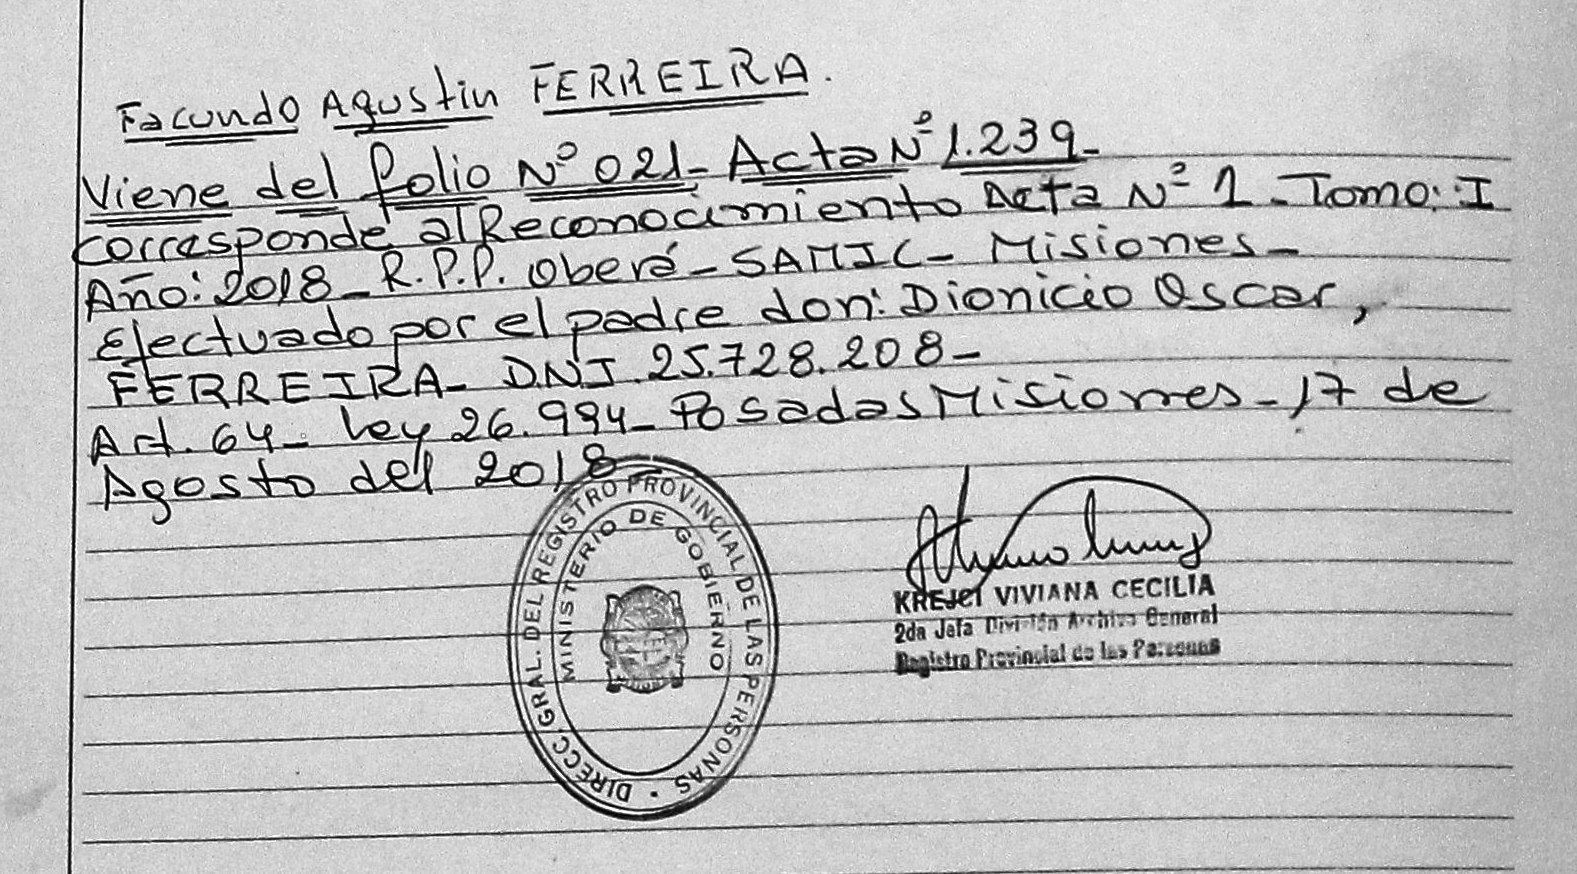 Facundo Agustin FERREIRA.
Viene del folio Nº 021- Acta Nº 1.239-
Corresponde al Reconocimiento Acta Nº 1 - Tomo: I
Año: 2018 - R.P.P. Oberá - SAMIC - Misiones -
Efectuado por el padre don: Dionicio Oscar,
FERREIRA - D.N.I. 25.728.208 -
Art. 64 - Ley 26.994 - Posadas Misiones - 17 de
Agosto del 2018
DIRECC. GRAL. DEL REGISTRO PROVINCIAL DE LAS PERSONAS
MINISTERIO DE GOBIERNO
KREJCI VIVIANA CECILIA
2da Jefa División Archivo General
Registro Provincial de las Personas